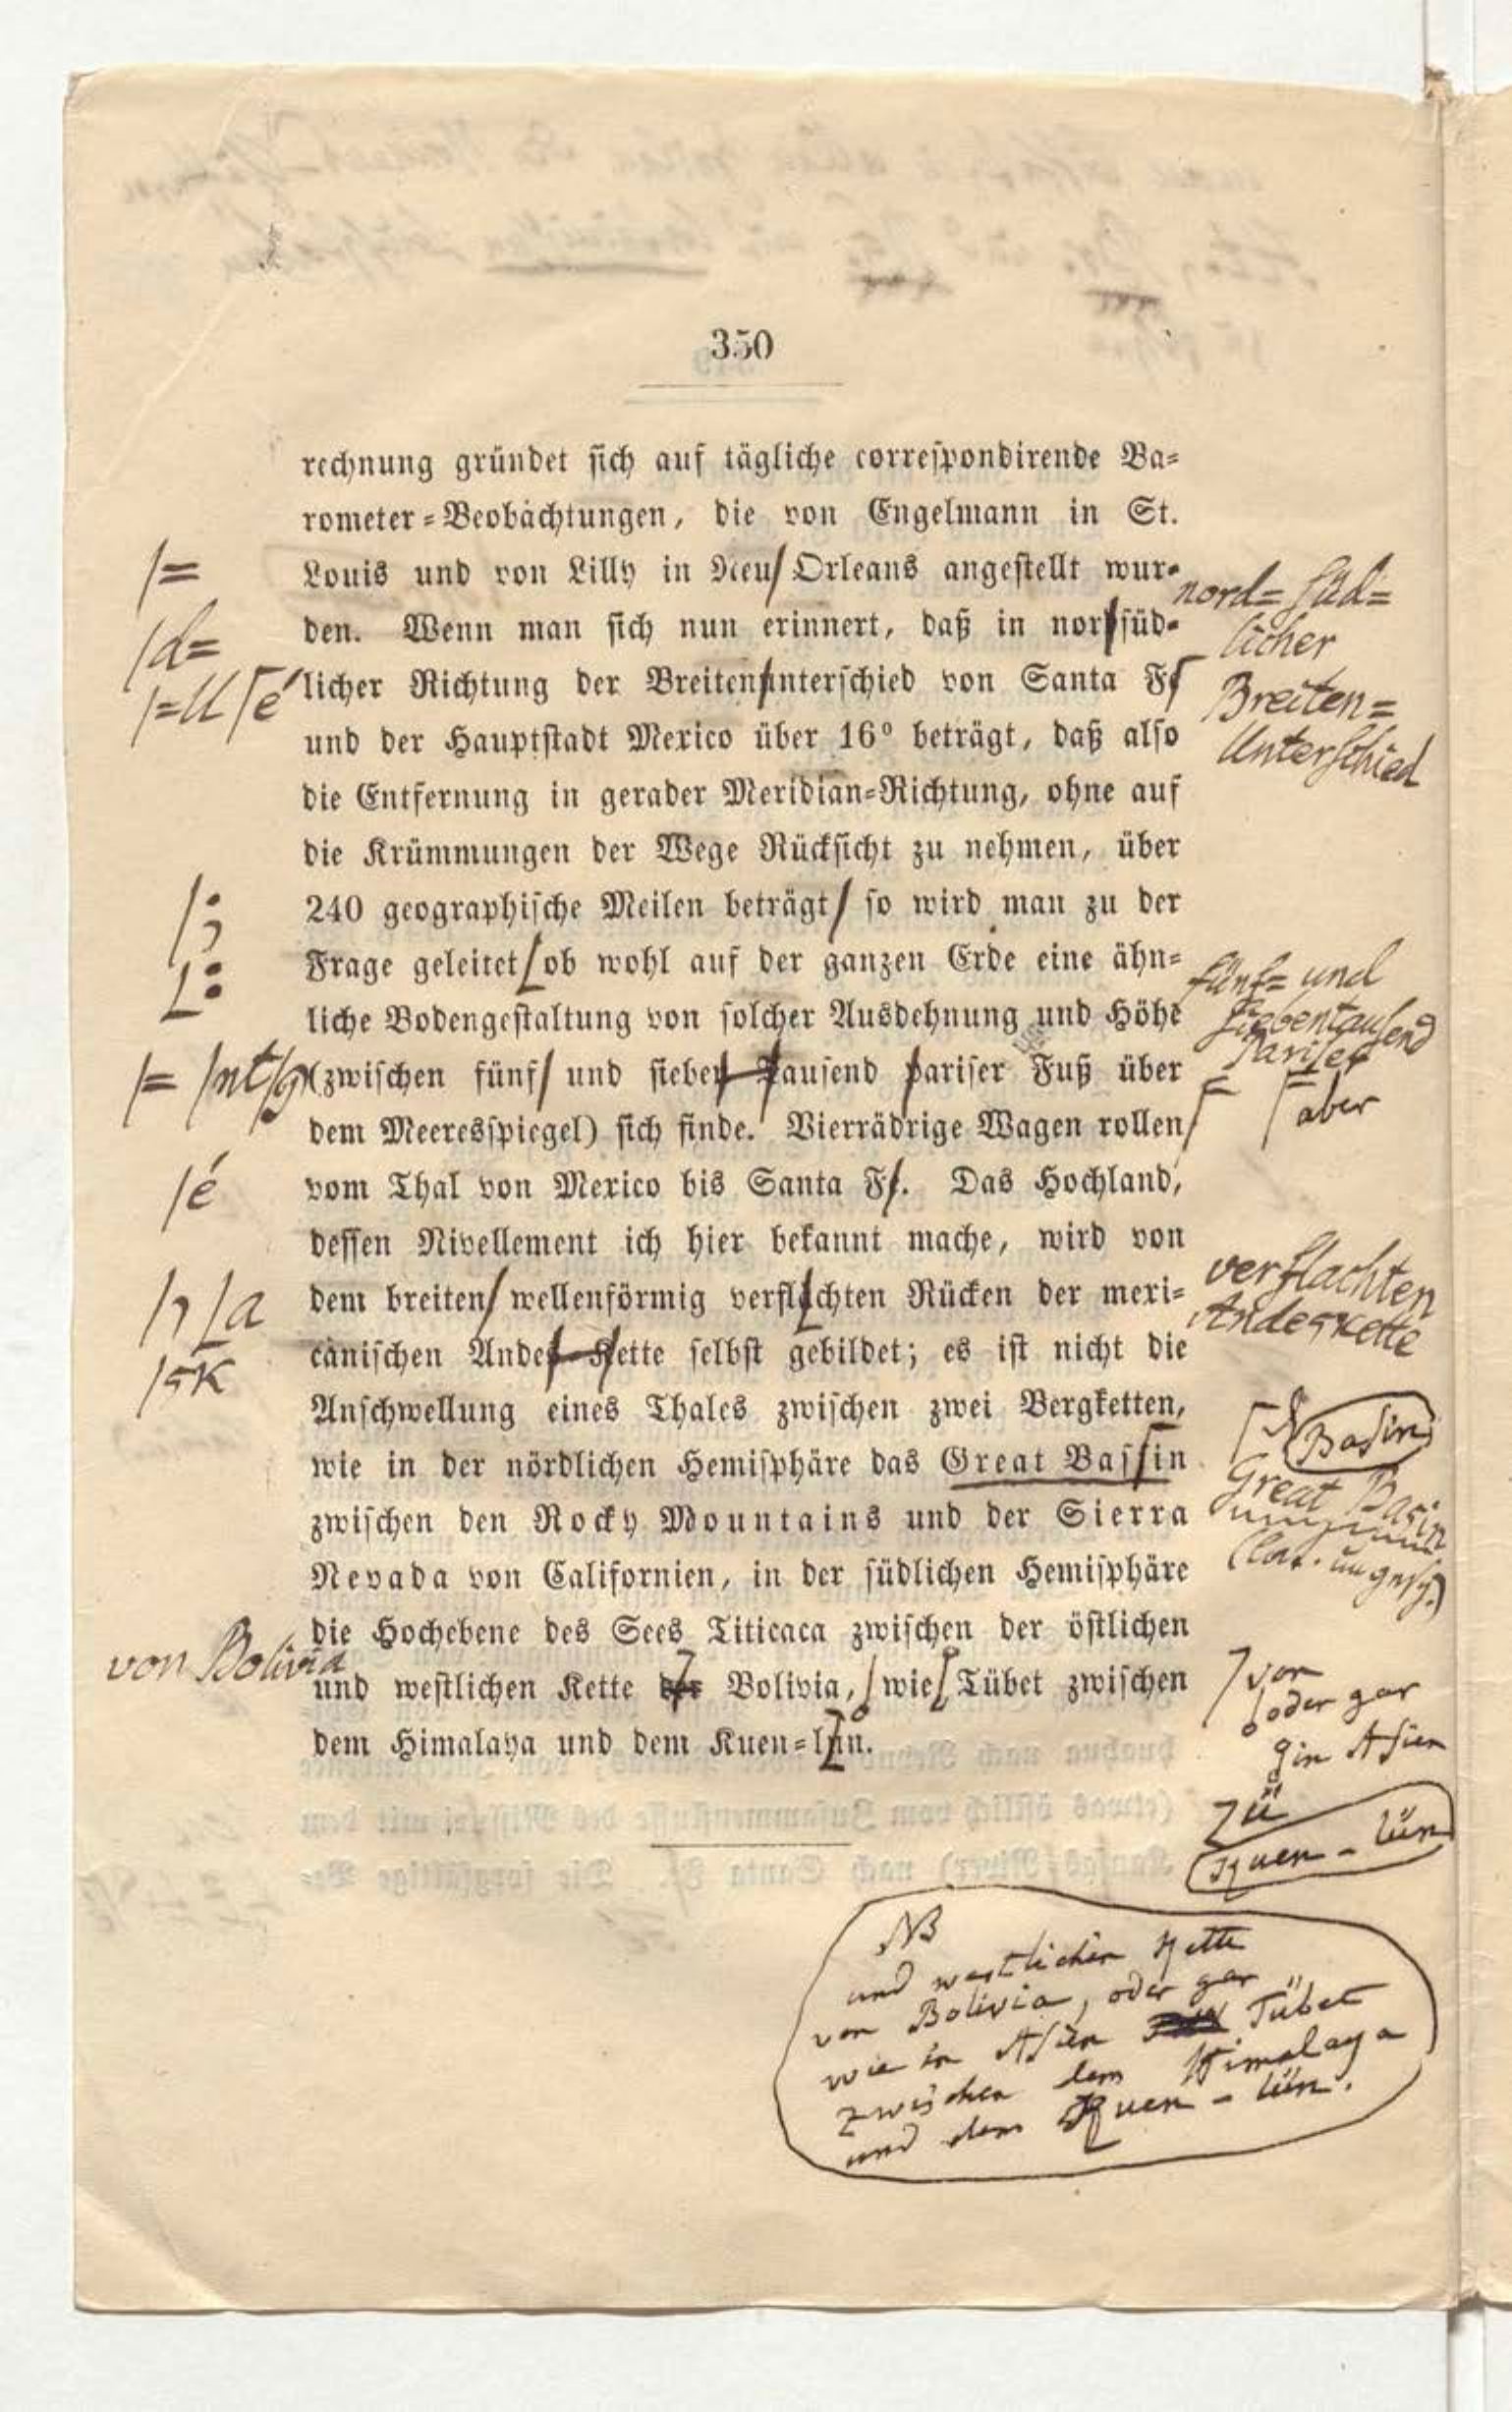 350
rechnung gründet sich auf tägliche correspondirende Ba=
rometer=Beobachtungen, die von Engelmann in St.
|=
Louis und von Lilly in Neu Orleans angestellt wur=
nord=süd=
licher
|d=
den. Wenn man sich nun erinnert, daß in nordsüd=
|=U ſé
licher Richtung der Breitenunterschied von Santa Fe
Breiten=
Unterschied
und der Hauptstadt Mexico über 16° beträgt, daß also
die Entfernung in gerader Meridian=Richtung, ohne auf
die Krümmungen der Wege Rücksicht zu nehmen, über
|;
240 geographische Meilen beträgt/ so wird man zu der
L:
Frage geleitet/ ob wohl auf der ganzen Erde eine ähn=
fünf= und
siebentausend
Pariser
liche Bodengestaltung von solcher Ausdehnung und Höhe
|= |nt|g
(zwischen fünf/ und sieben Tausend pariser Fuß über
aber
dem Meeresspiegel) sich finde. Vierrädrige Wagen rollen
|é
vom Thal von Mexico bis Santa F/. Das Hochland,
dessen Nivellement ich hier bekannt mache, wird von
verflachten
Andeskette
|, La
dem breiten/ wellenförmig verflachten Rücken der mexi=
|sk
canischen Andes=Kette selbst gebildet; es ist nicht die
Anschwellung eines Thales zwischen zwei Bergketten,
Basin
wie in der nördlichen Hemisphäre das Great Bassin
Great Basin
zwischen den Rocky Mountains und der Sierra
Nevada von Californien, in der südlichen Hemisphäre
die Hochebene des Sees Titicaca zwischen der östlichen
von Bolivia
und westlichen Kette der Bolivia, wie Tübet zwischen
von
oder gar
in Asien
dem Himalaya und dem Kuen=lün.
ü
Kuen-lün
NB
und westlichen Kette
von Bolivia, oder gar
wie in Asien Tübet
zwischen dem Himalaya
und dem Kuen-lün.